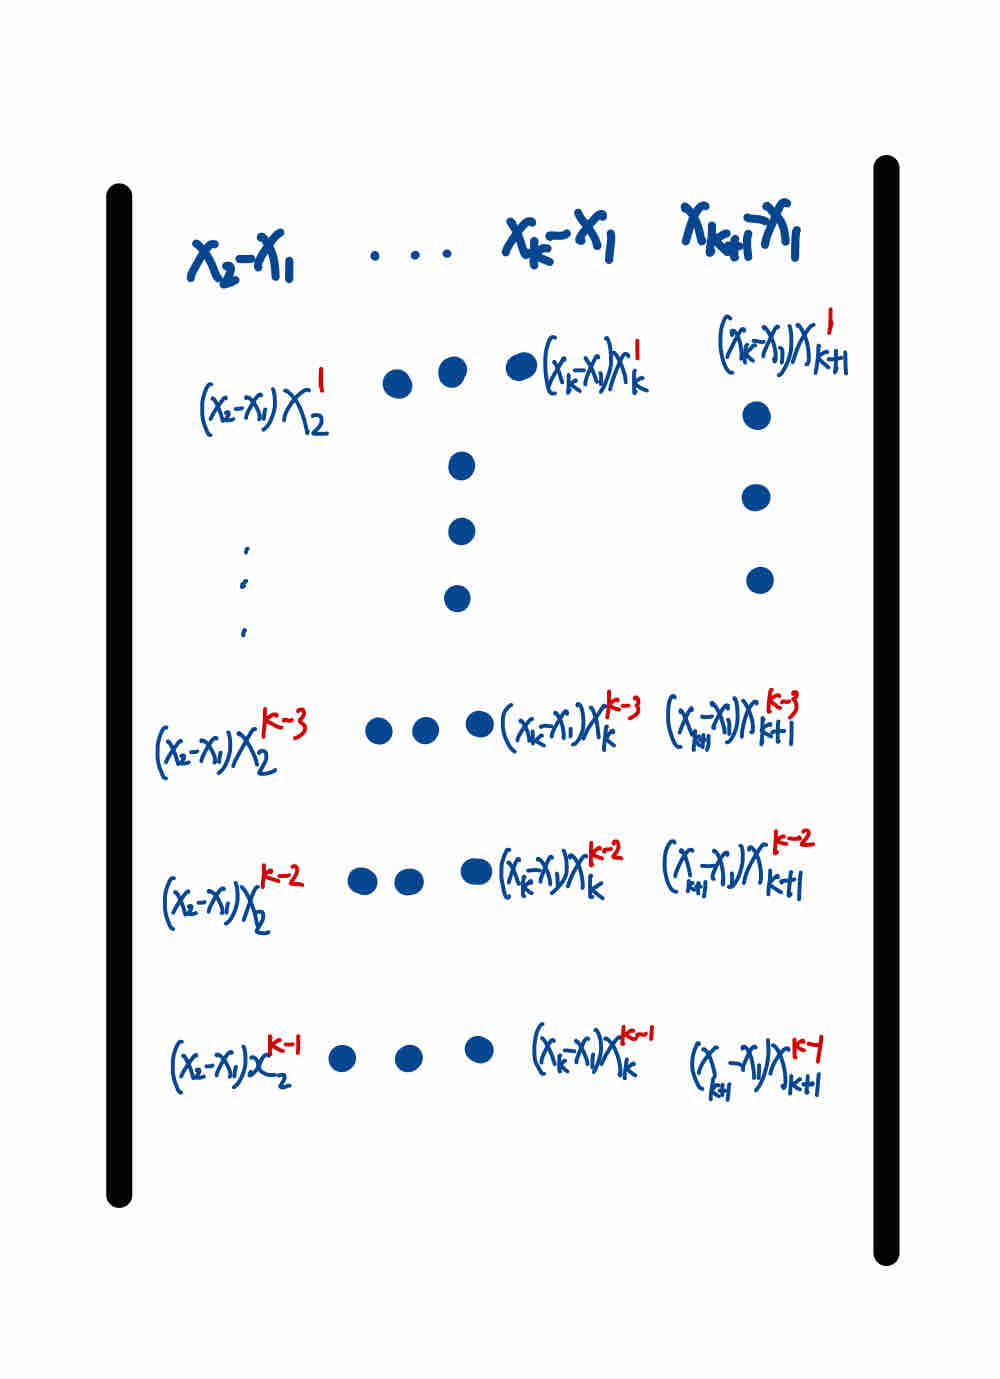 x₂-x₁ ... xₖ-x₁ xₖ₊₁-x₁
(x₂-x₁)x₂¹ ... (xₖ-x₁)xₖ¹ (xₖ-x₁)xₖ₊₁¹
⋮ ⋮ ⋮
(x₂-x₁)x₂ᵏ⁻³ ... (xₖ-x₁)xₖᵏ⁻³ (xₖ₊₁-x₁)xₖ₊₁ᵏ⁻³
(x₂-x₁)x₂ᵏ⁻² ... (xₖ-x₁)xₖᵏ⁻² (xₖ₊₁-x₁)xₖ₊₁ᵏ⁻²
(x₂-x₁)x₂ᵏ⁻¹ ... (xₖ-x₁)xₖᵏ⁻¹ (xₖ₊₁-x₁)xₖ₊₁ᵏ⁻¹